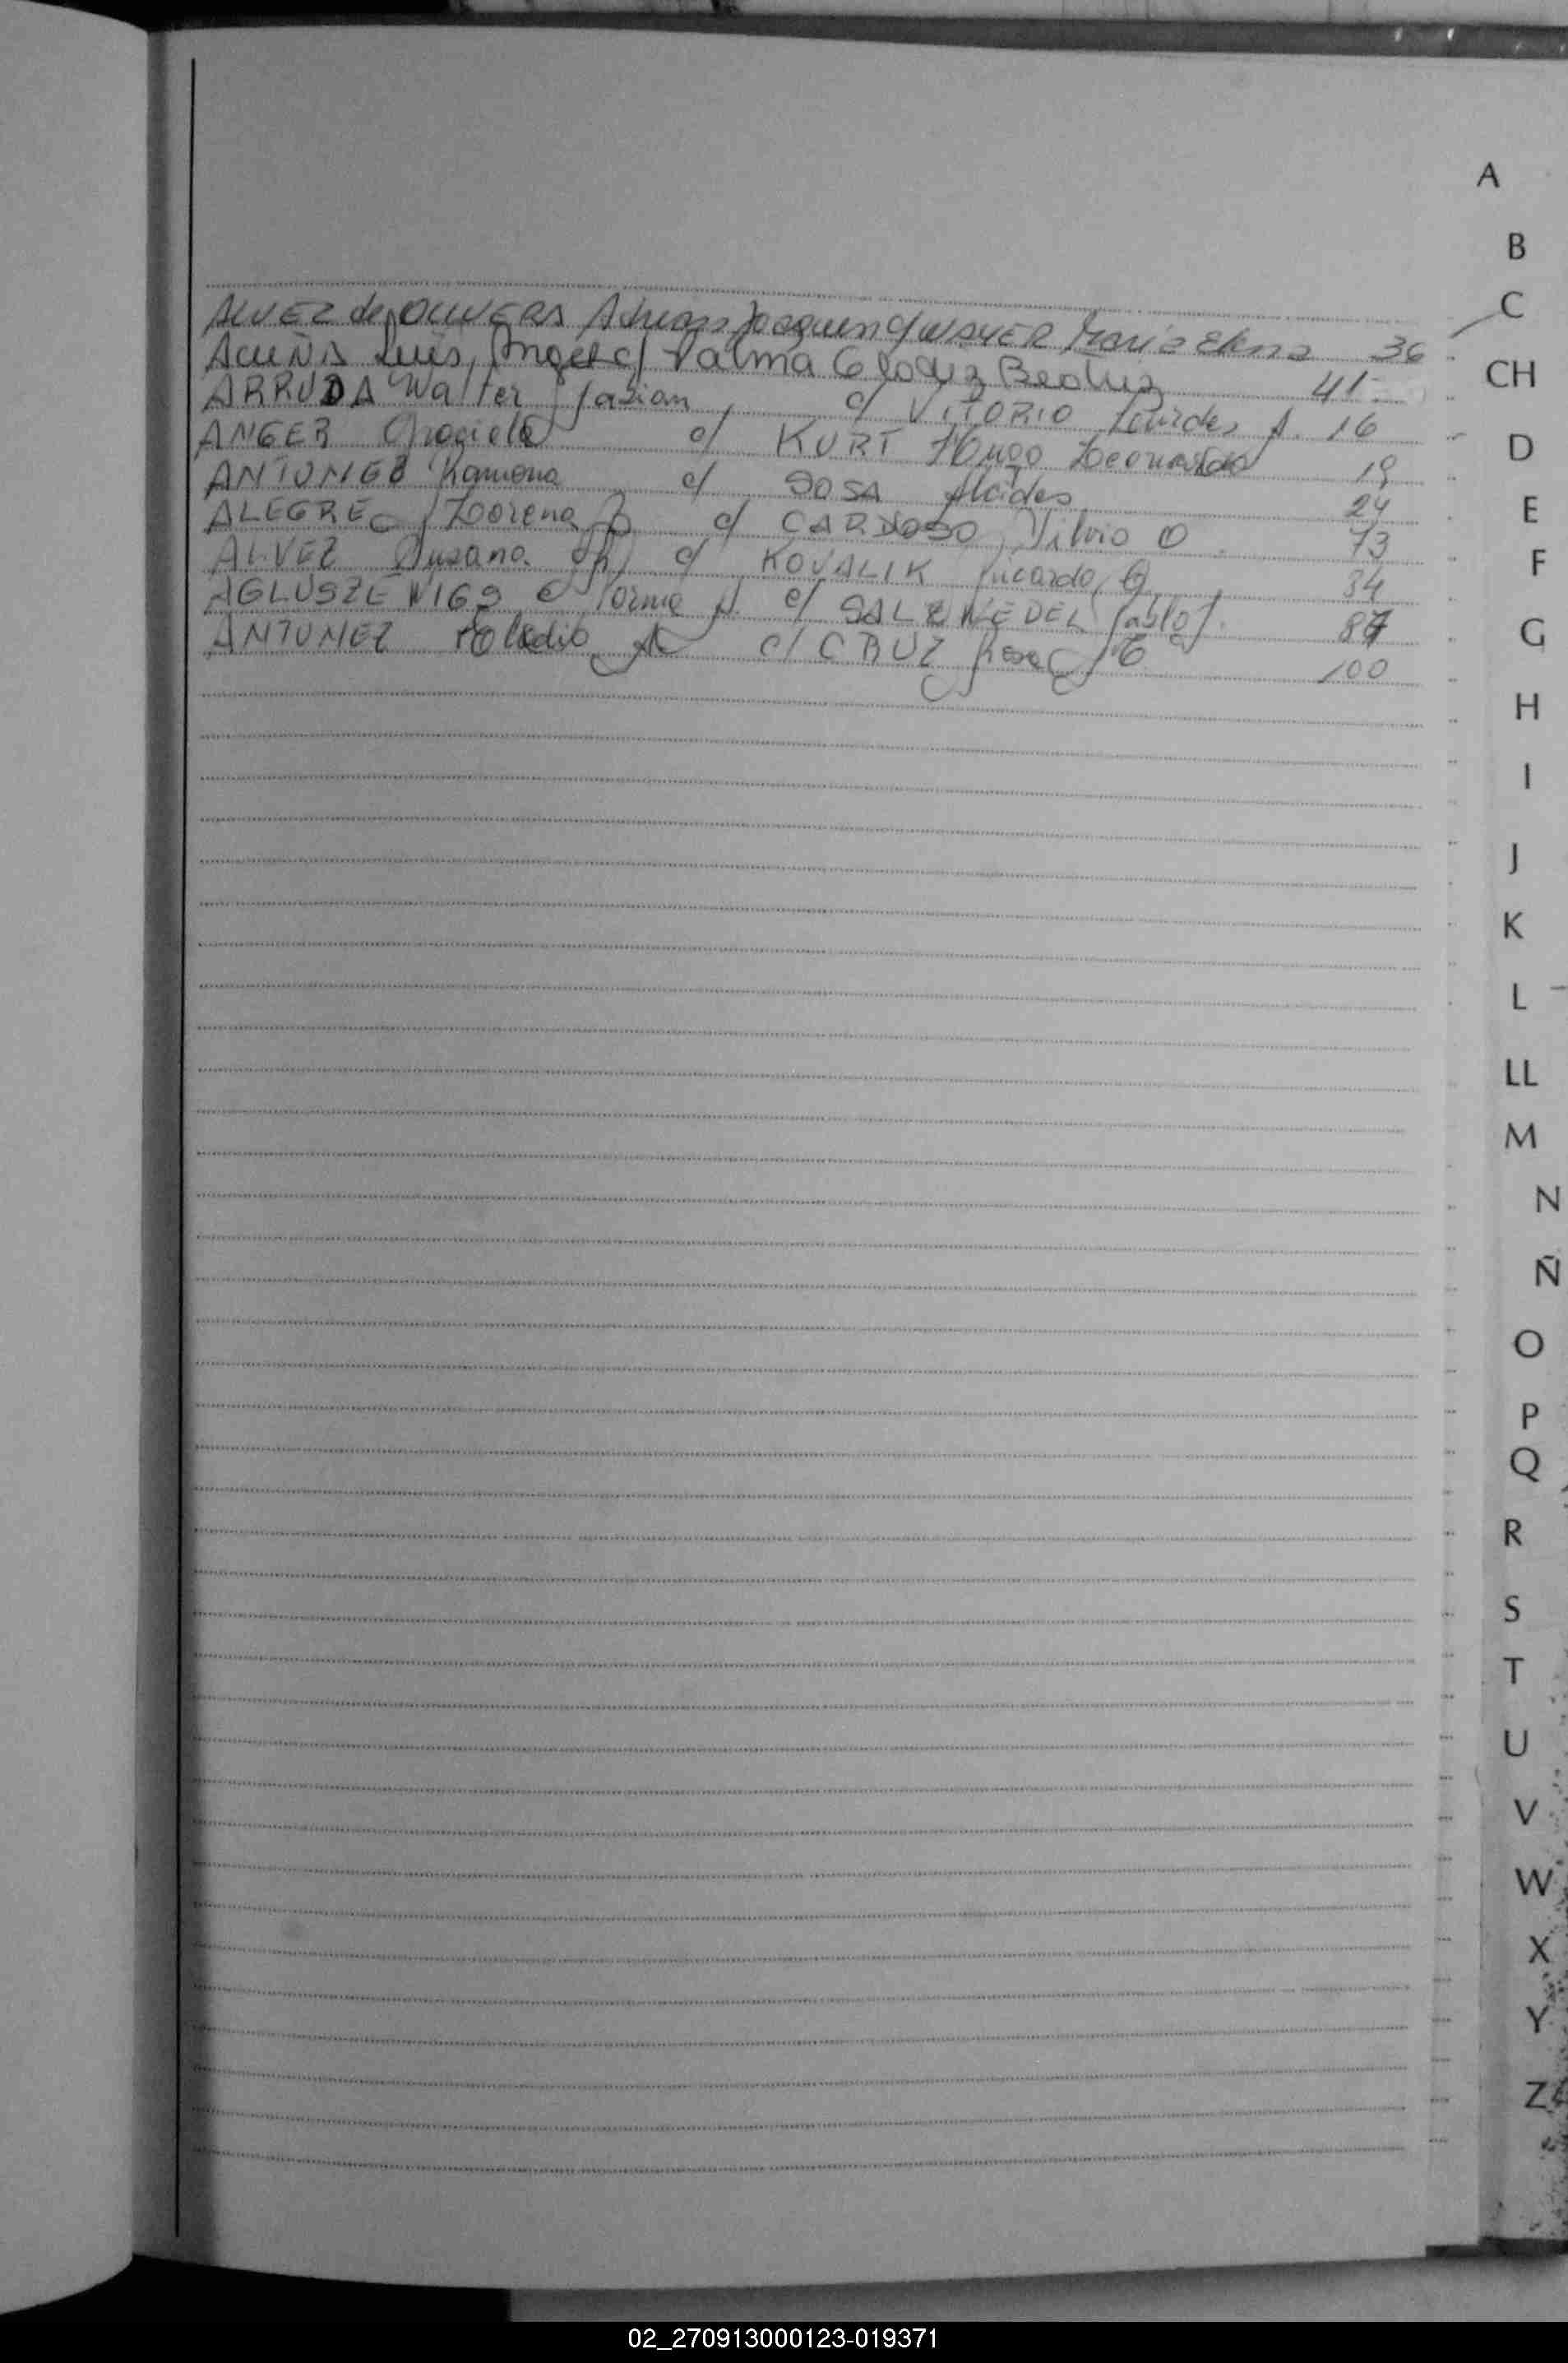 ALVEZ de OLIVERA Adriano Joaquin c/ WAYER Maria Elena 36
ACUÑA Luis, Angel c/ Palma Gladyz Beatriz 41
ARRUDA Walter Fabian c/ VITORIO Lourdes A. 16
ANGER Graciela c/ KURT Hugo Leonardo 19
ANTUNEZ Ramona c/ SOSA Alcides 24
ALEGRE Lorena B c/ CARDOSO Silvio O. 73
ALVEZ Susana c/ KOVALIK Ricardo 34
AGLUSZEWIGS Norma c/ SALZWEDEL Pablo J. 87
ANTUNEZ Eladio A c/ CRUZ Rosa E 100
A
B
C
CH
D
E
F
G
H
I
J
K
L
LL
M
N
Ñ
O
P
Q
R
S
T
U
V
W
X
Y
Z
02_270913000123-019371